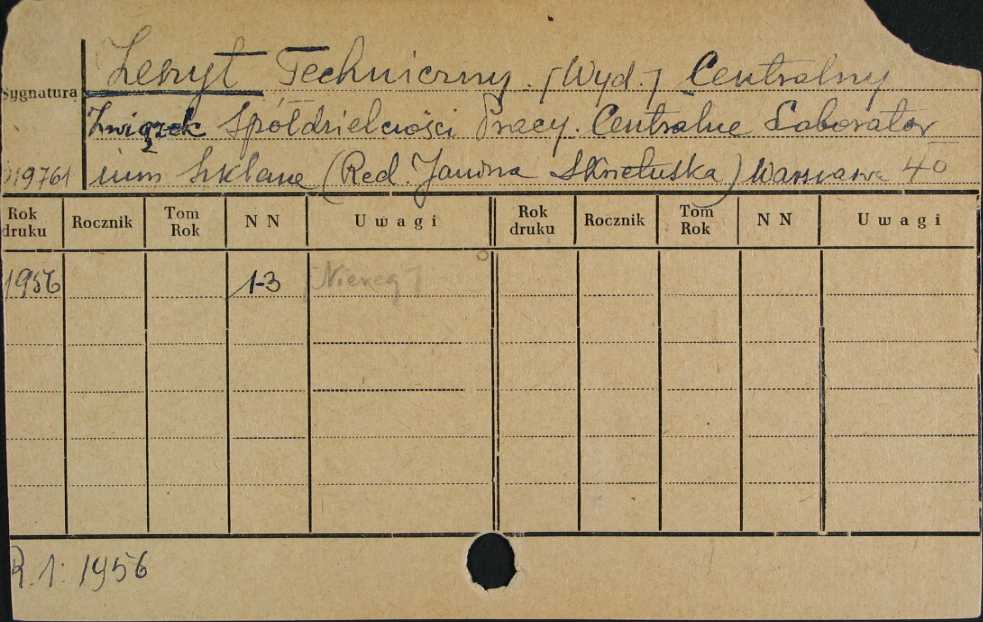 Zeszyt Techniczny. [Wyd.] Centralny
Sygnatura
Związek Spółdzielczości Pracy. Centralne Laborator
ium Szklane (Red. Janina Skrzetuska) Warszawa 4°
19761
Rok druku Rocznik Tom Rok N N Uwagi Rok druku Rocznik Tom Rok N N Uwagi
1956 1-3 [Niereg]
R. 1: 1956